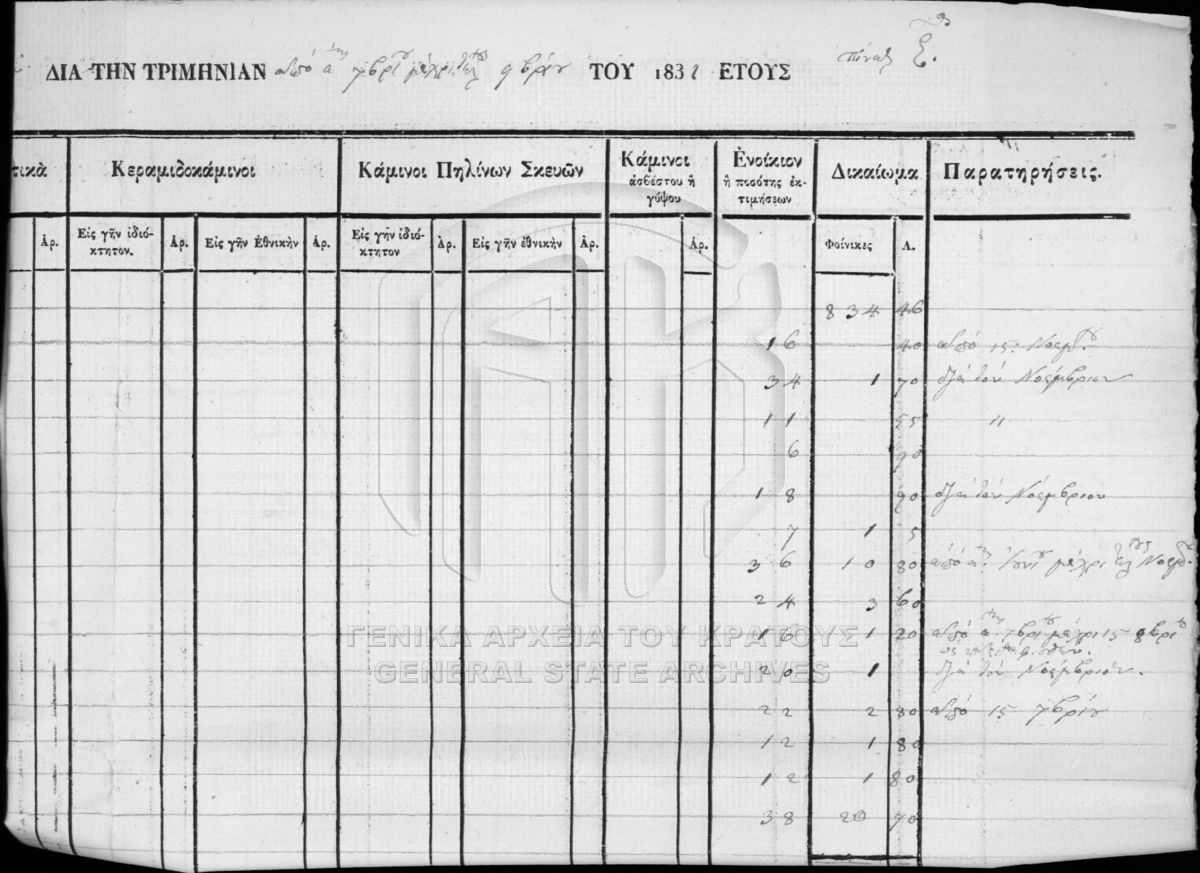 πίναξ Ξ.
ΔΙΑ ΤΗΝ ΤΡΙΜΗΝΙΑΝ ἀπὸ α 7βρίου μέχρι τέλους 9βρίου ΤΟΥ 183 ΕΤΟΥΣ
τικὰ Κεραμιδοκάμινοι Κάμινοι Πηλίνων Σκευῶν Κάμινοι ἀσβέστου ἢ γύψου Ἐνοίκιον ἢ ποσότης ἐκτιμήσεων Δικαίωμα Παρατηρήσεις.
Ἀρ. Εἰς γῆν ἰδιόκτητον. Ἀρ. Εἰς γῆν Ἐθνικὴν Ἀρ. Εἰς γῆν ἰδιόκτητον Ἀρ. Εἰς γῆν ἐθνικὴν Ἀρ. Ἀρ. Φοίνικες Λ.
834 46
16 40 ἀπὸ 15 Νοεμβ.
34 1 70 διὰ τὸν Νοέμβριον
11 55 "
6 90
18 90 διὰ τὸν Νοέμβριον
7 1 5
36 10 80 ἀπὸ α Ἰουνίου μέχρι τέλους Νοεμβ.
24 3 60
16 1 20 ἀπὸ α 7βρίου μέχρι 15 8βρίου
20 1 διὰ τὸν Νοέμβριον.
22 2 80 ἀπὸ 15 7βρίου
12 1 80
12 1 80
38 20 70
ΓΕΝΙΚΑ ΑΡΧΕΙΑ ΤΟΥ ΚΡΑΤΟΥΣ
GENERAL STATE ARCHIVES